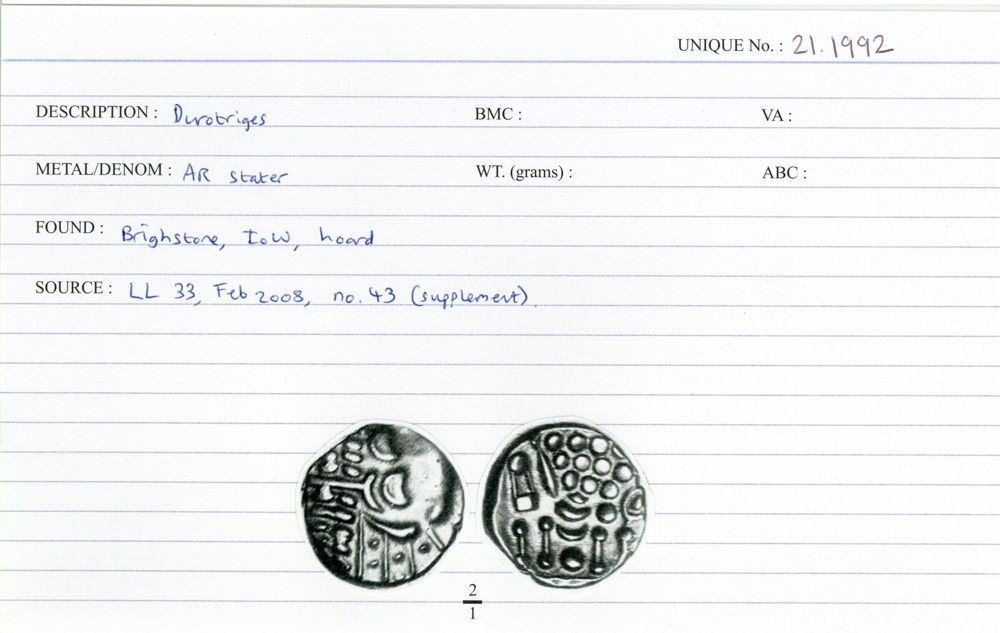 UNIQUE No. : 21.1992
DESCRIPTION : Durotriges BMC : VA :
METAL/DENOM : AR stater WT. (grams) : ABC :
FOUND : Brighstone, IoW, hoard
SOURCE : LL 33, Feb 2008, no. 43 (supplement).
2
1